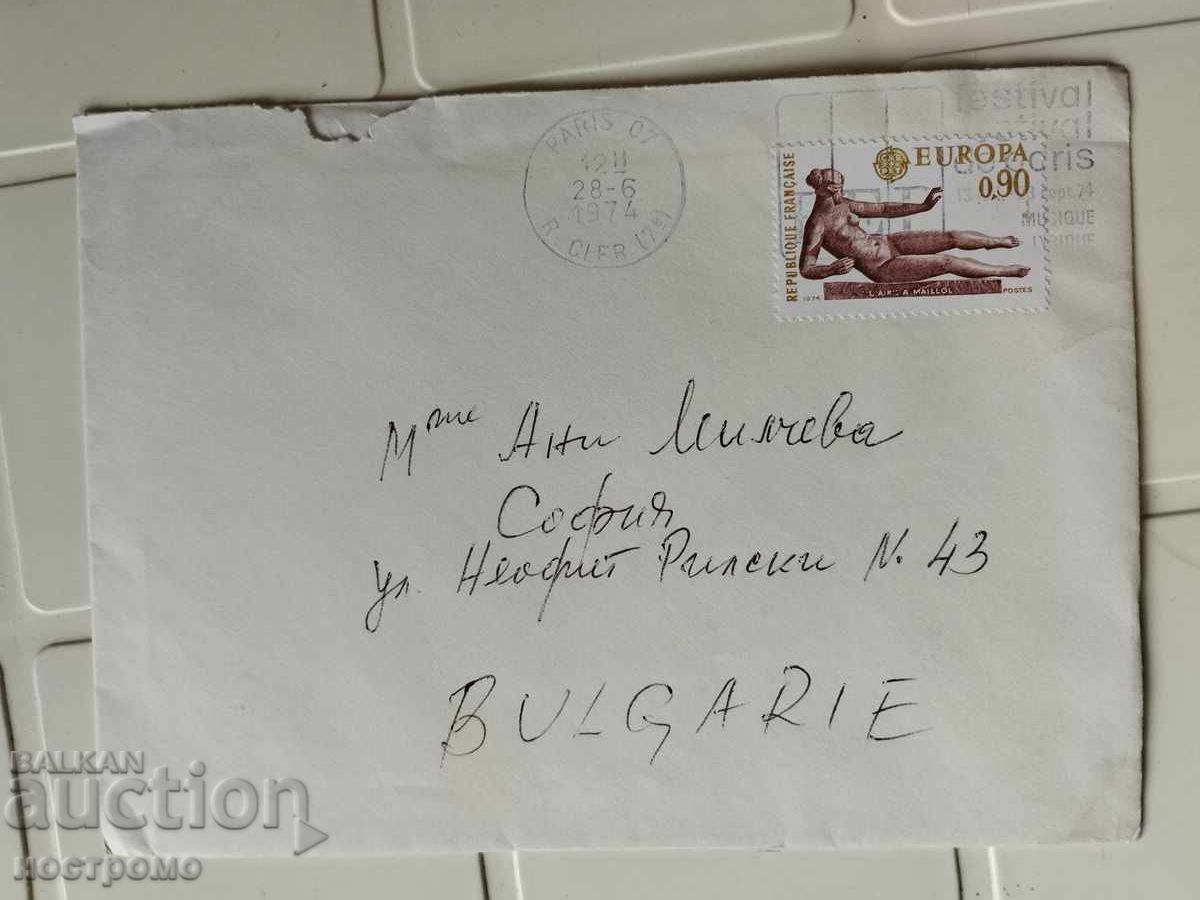 PARIS 07
12H
28-6
1974
R. CLER (7e)
festival
festival
de paris
sept. 74
MUSIQUE
LYRIQUE
EUROPA
0,90
REPUBLIQUE FRANÇAISE
1974 "L'AIR" A. MAILLOL POSTES
Mme Ани Милчева
София
ул. Неофит Рилски N. 43
BULGARIE
BALKAN
auction
ностромо